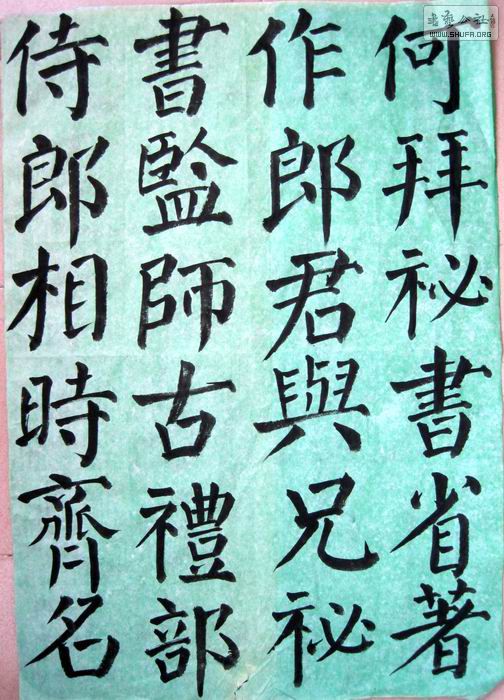 何拜祕書省著
作郎君與兄祕
書監師古禮部
侍郎相時齊名
書藝公社
WWW.SHUFA.ORG